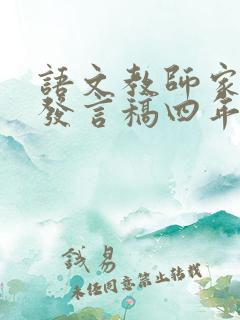 語文教師家
發言稿四年
錢易
未经同意禁止转载